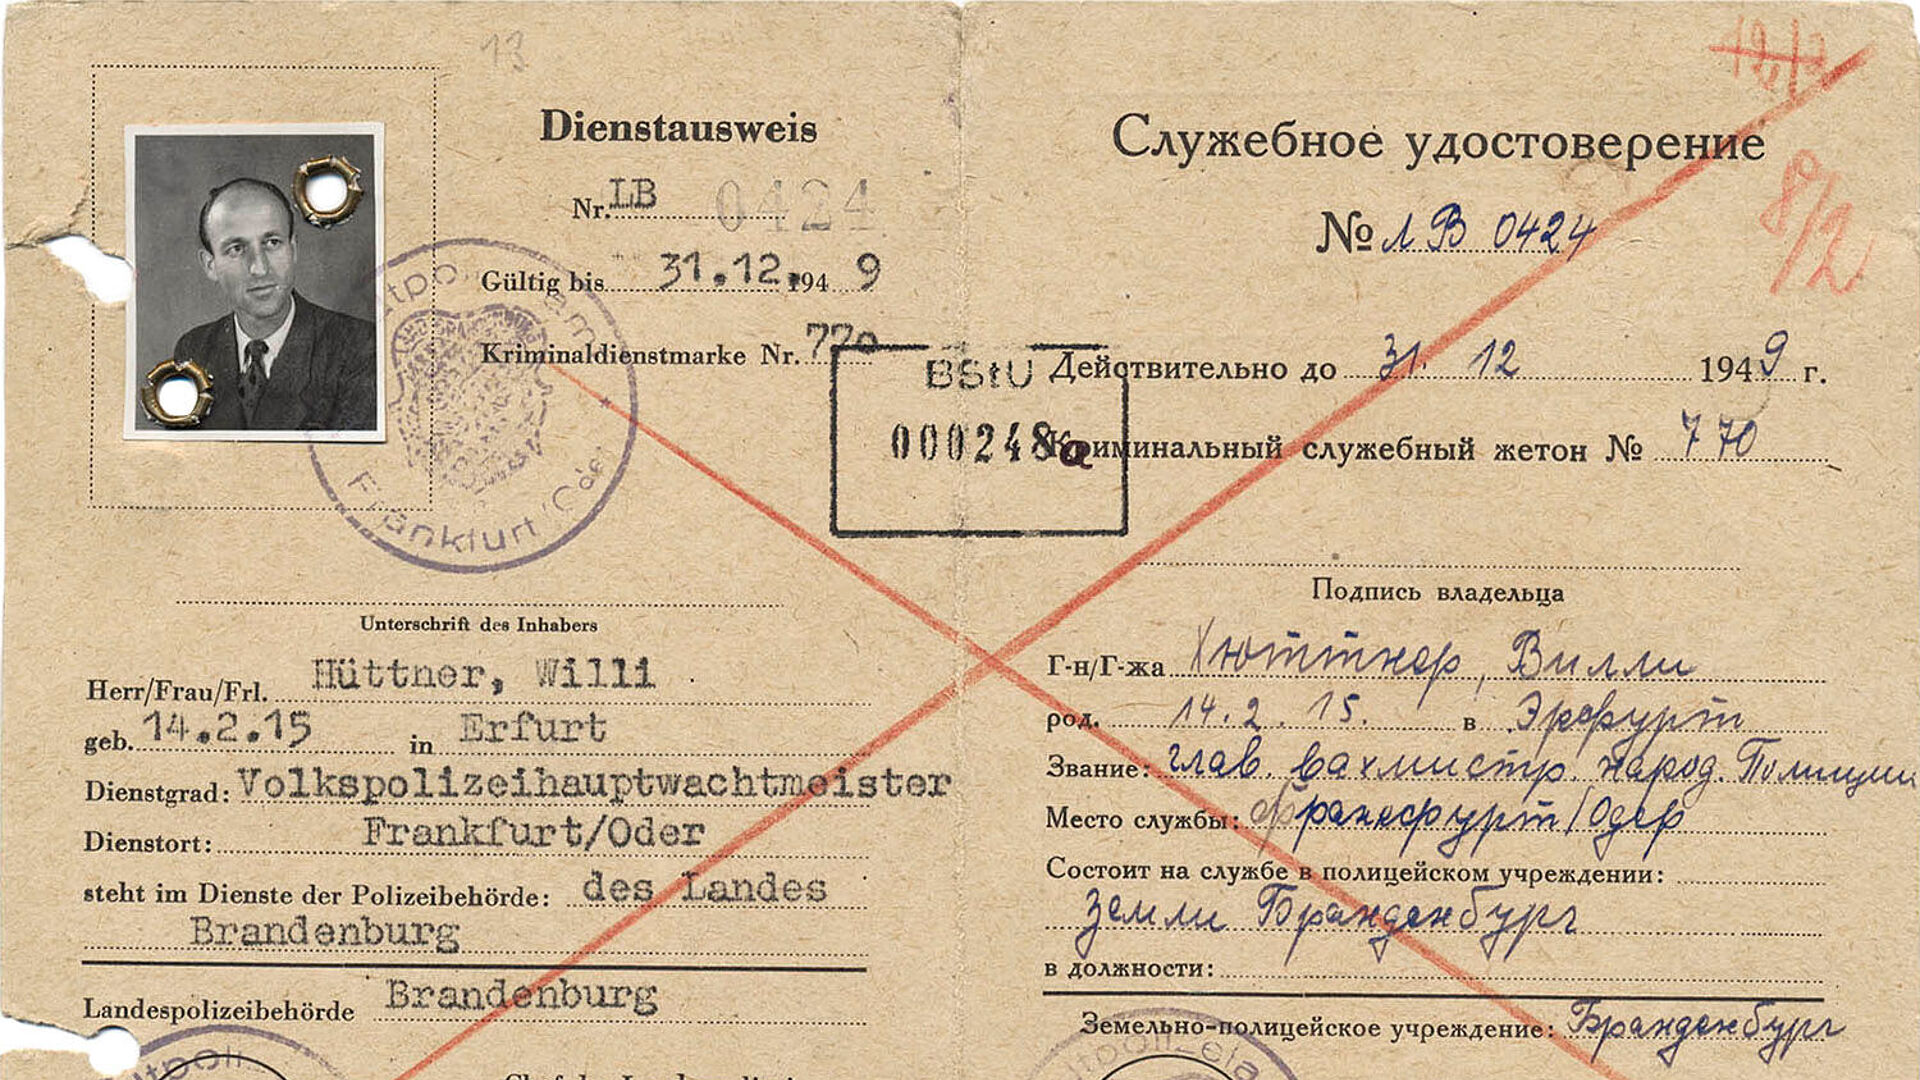 13
Dienstausweis
Nr. LB 0424
Gültig bis 31.12.1949
Kriminaldienstmarke Nr. 770
Frankfurt (Oder)
Unterschrift des Inhabers
Herr/Frau/Frl. Hüttner, Willi
geb. 14.2.15 in Erfurt
Dienstgrad: Volkspolizeihauptwachtmeister
Dienstort: Frankfurt/Oder
steht im Dienste der Polizeibehörde: des Landes
Brandenburg
Landespolizeibehörde Brandenburg
BStU
000248
Служебное удостоверение
8/2
№ ЛВ 0424
Действительно до 31. 12 1949 г.
Криминальный служебный жетон № 770
Подпись владельца
Г-н/Г-жа Хюттнер, Вилли
род. 14.2.15. в Эрфурт
Звание: глав. вахмистр. народ. Полиции
Место службы: Франкфурт/Одер
Состоит на службе в полицейском учреждении:
Земли Бранденбург
в должности:
Земельно-полицейское учреждение: Бранденбург